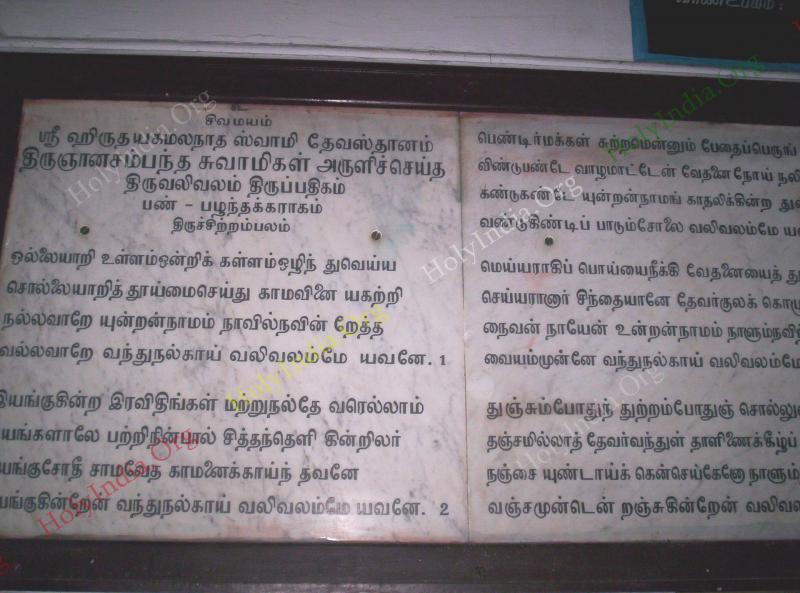 சிவமயம்
ஸ்ரீ ஹிருதயகமலநாத ஸ்வாமி தேவஸ்தானம்
திருஞானசம்பந்த சுவாமிகள் அருளிச்செய்த
திருவலிவலம் திருப்பதிகம்
பண் - பழந்தக்கராகம்
திருச்சிற்றம்பலம்
ஒல்லையாறி உள்ளம்ஒன்றிக் கள்ளம்ஒழிந் துவெய்ய
சொல்லையாறித் தூய்மைசெய்து காமவினை யகற்றி
நல்லவாறே யுன்றன்நாமம் நாவில்நவின் றேத்த
வல்லவாறே வந்துநல்காய் வலிவலம்மே யவனே. 1
இயங்குகின்ற இரவிதிங்கள் மற்றுநல்தே வரெல்லாம்
யங்களாலே பற்றிநின்பால் சித்தந்தெளி கின்றிலர்
யங்குசோதீ சாமவேத காமனைக்காய்ந் தவனே
யங்குகின்றேன் வந்துநல்காய் வலிவலம்மே யவனே. 2
பெண்டிர்மக்கள் சுற்றமென்னும் பேதைப்பெருங்
விண்டுபண்டே வாழமாட்டேன் வேதனைநோய் நலி
கண்டுகண்டே யுன்றன்நாமங் காதலிக்கின்ற து
வண்டுகிண்டிப் பாடும்சோலை வலிவலம்மே ய
மெய்யராகிப் பொய்யைநீக்கி வேதனையைத் து
செய்யரானார் சிந்தையானே தேவர்குலக் கொழு
நைவன் நாயேன் உன்றன்நாமம் நாளும்நவி
வையம்முன்னே வந்துநல்காய் வலிவலம்மே
துஞ்சும்போதுந் துற்றும்போதுஞ் சொல்லு
தஞ்சமில்லாத் தேவர்வந்துன் தாளிணைக்கீழ்ப்
நஞ்சை யுண்டாய்க் கென்செய்கேனோ நாளும்
வஞ்சமுண்டென் றஞ்சுகின்றேன் வலிவல
HolyIndia.Org
HolyIndia.Org
HolyIndia.Org
HolyIndia.Org
HolyIndia.Org
HolyIndia.Org